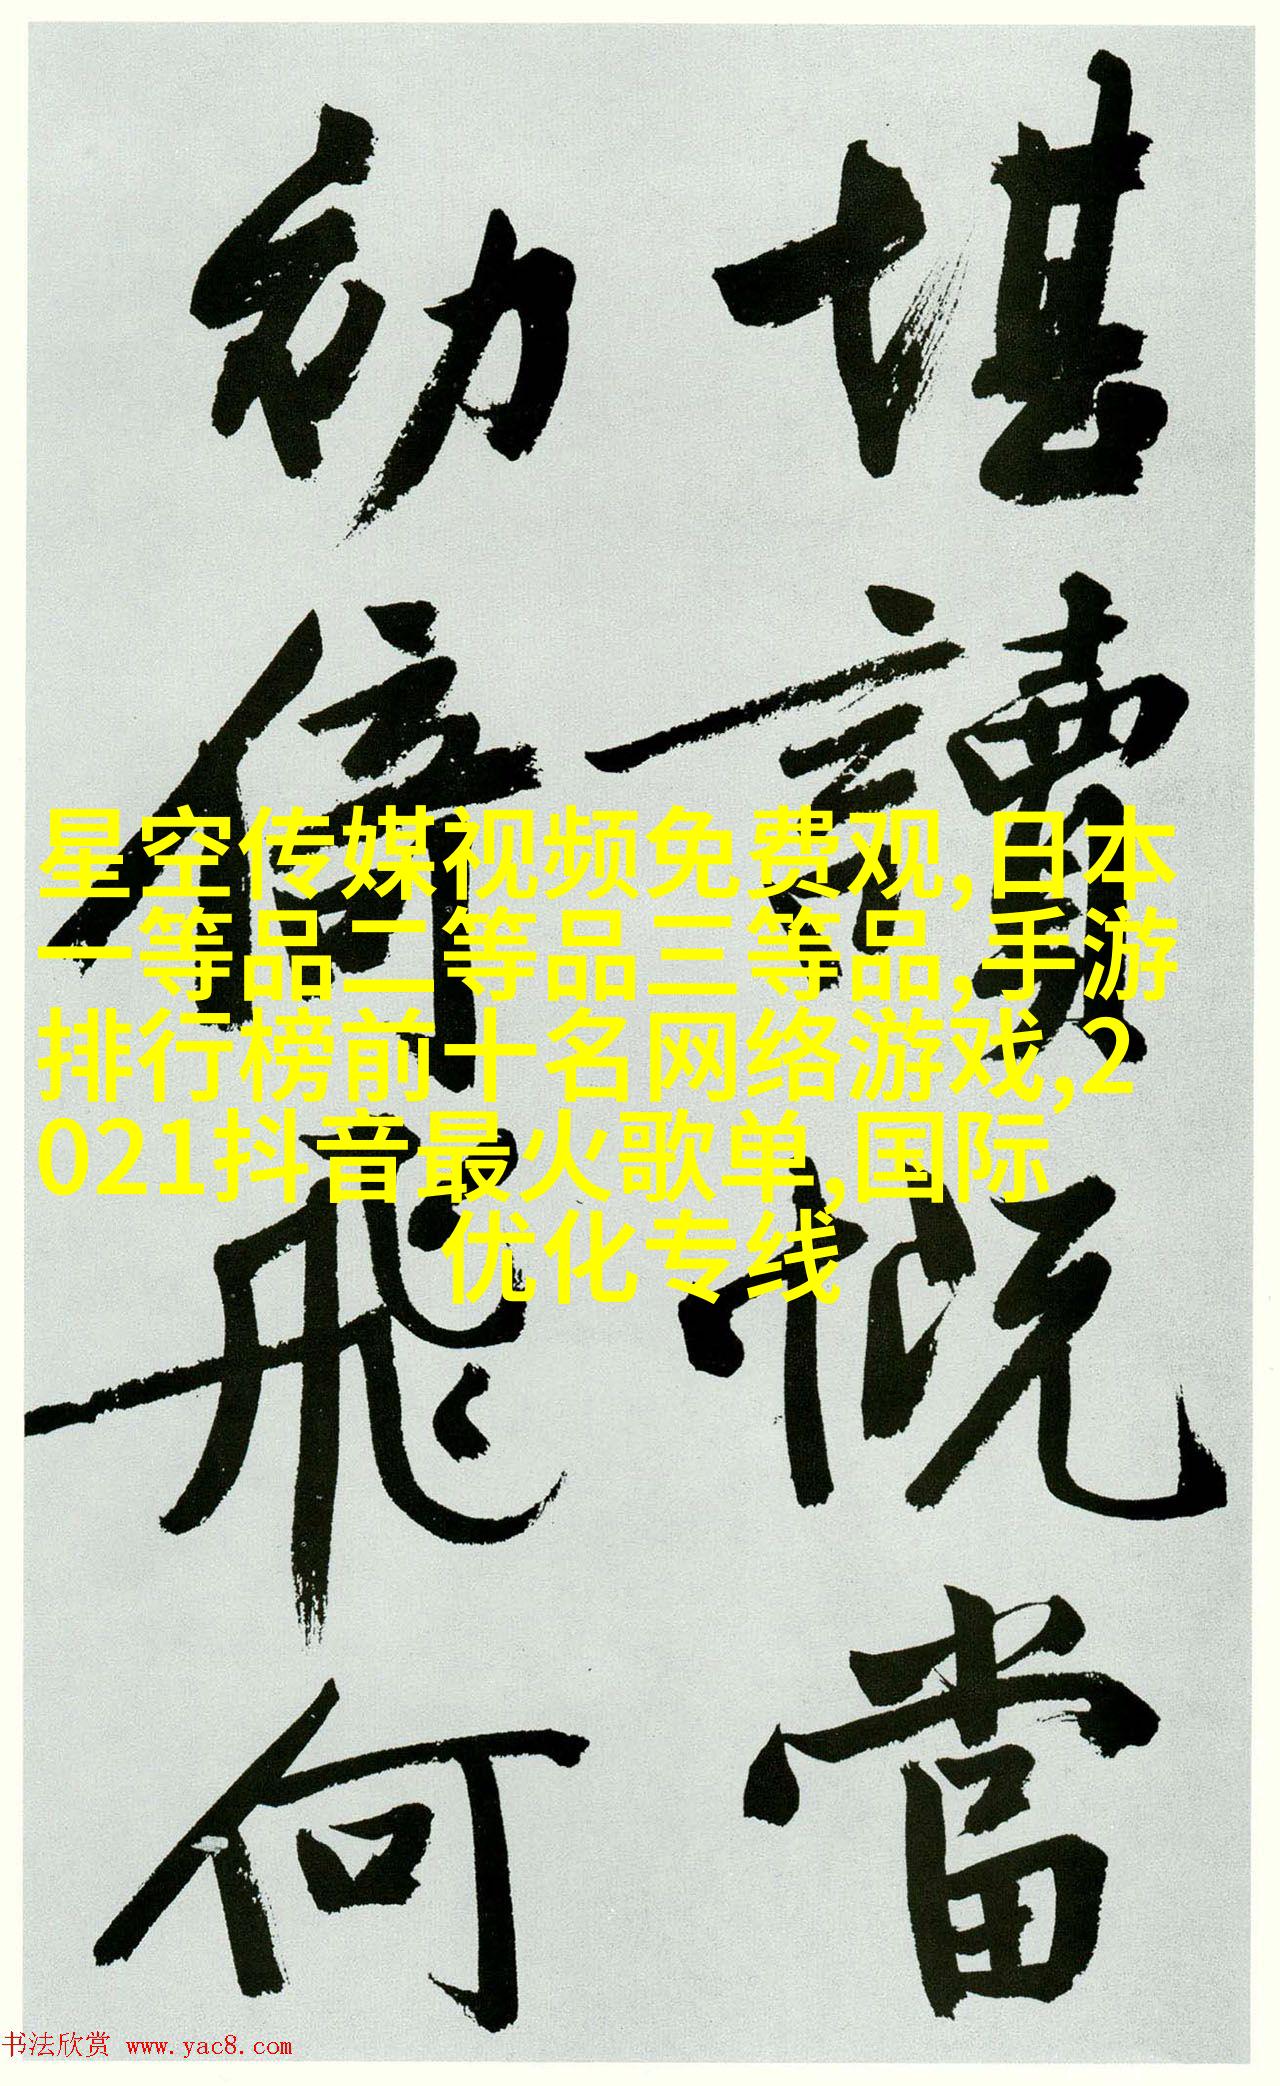 堪讀慨當
初倚飛何
星空传媒视频免费观,日本
一等品二等品三等品,手游
排行榜前十名网络游戏,2
021抖音最火歌单,国际
优化专线
书法欣赏 www.yac8.com